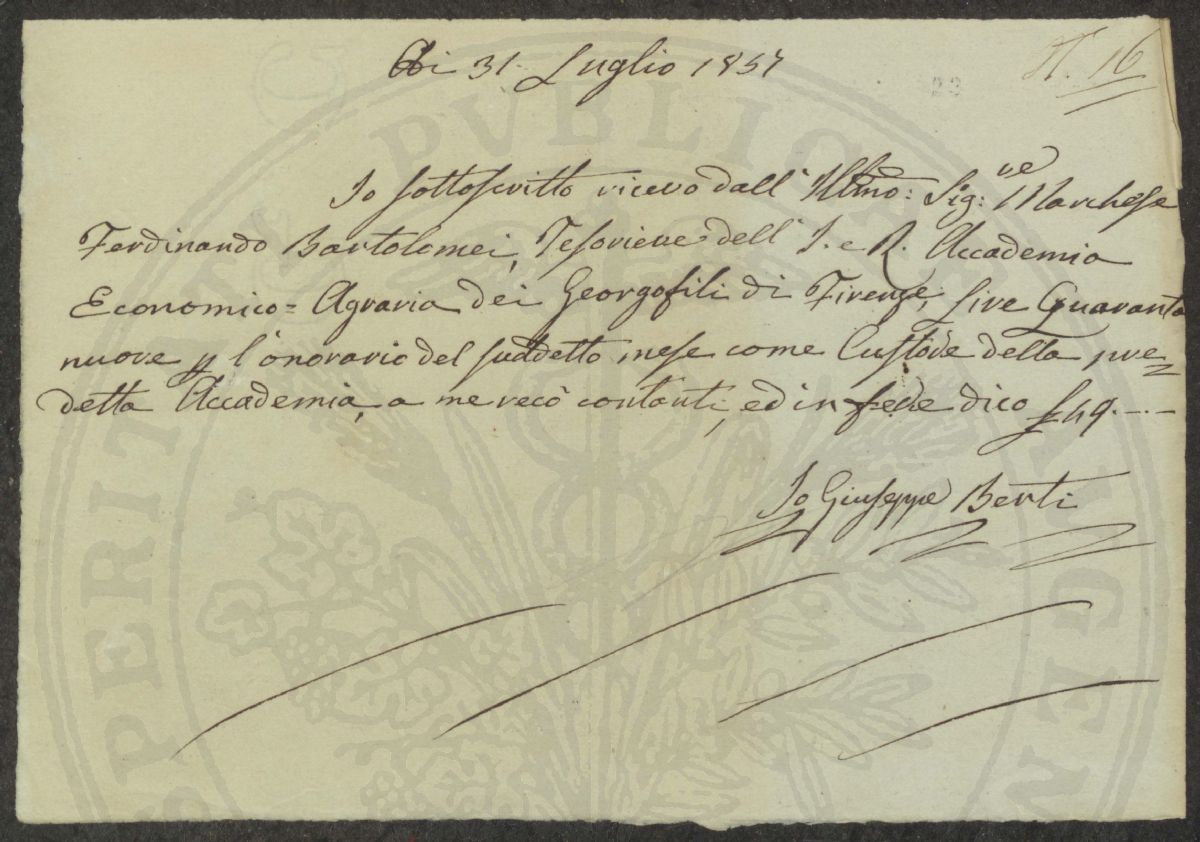 Adi 31 Luglio 1857
N. 16
23
Io sottoscritto ricevo dall' Illmo: Sig:re Marchese
Ferdinando Bartolomei, Tesoriere dell' I. e R. Accademia
Economico=Agraria dei Georgofili di Firenze, Lire Quaranta
nuove p l'onorario del suddetto mese come Custode della pre=
detta Accademia, a me recò contanti, ed in fede dico £ 49.---
Io Giuseppe Berti
PROSPERITATI PUBLICAE AUGENDAE